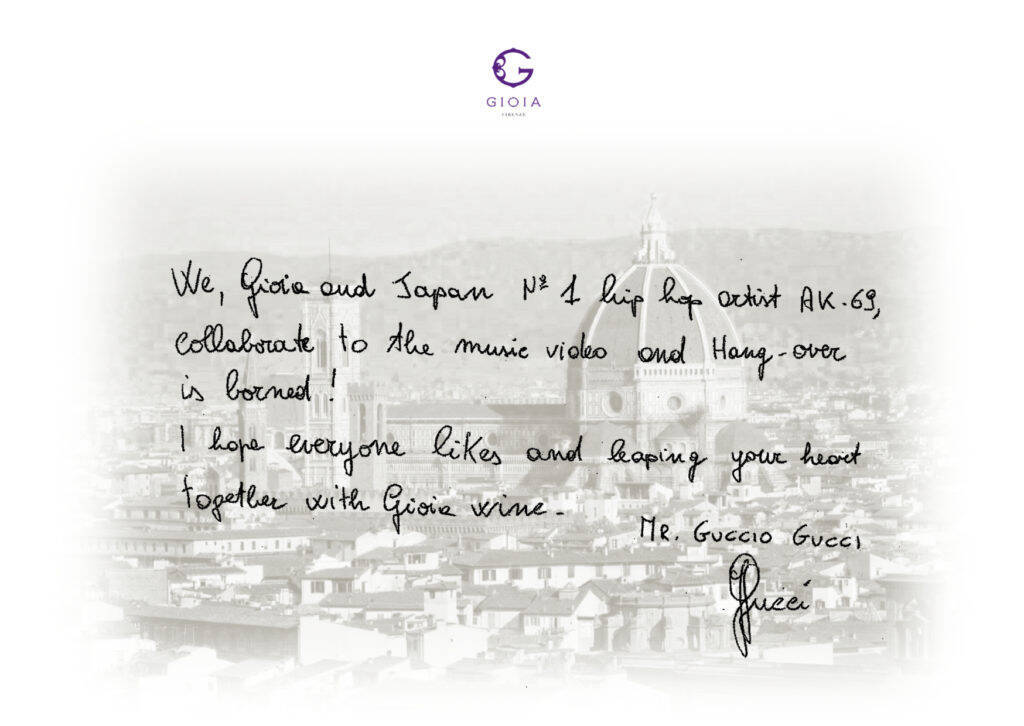 G
GIOIA
FIRENZE
We, Gioia and Japan Nº 1 hip hop artist AK-69,
collaborate to the music video and Hang-over
is borned!
I hope everyone likes and leaping your heart
together with Gioia wine.
MR. GUCCIO GUCCI
Gucci